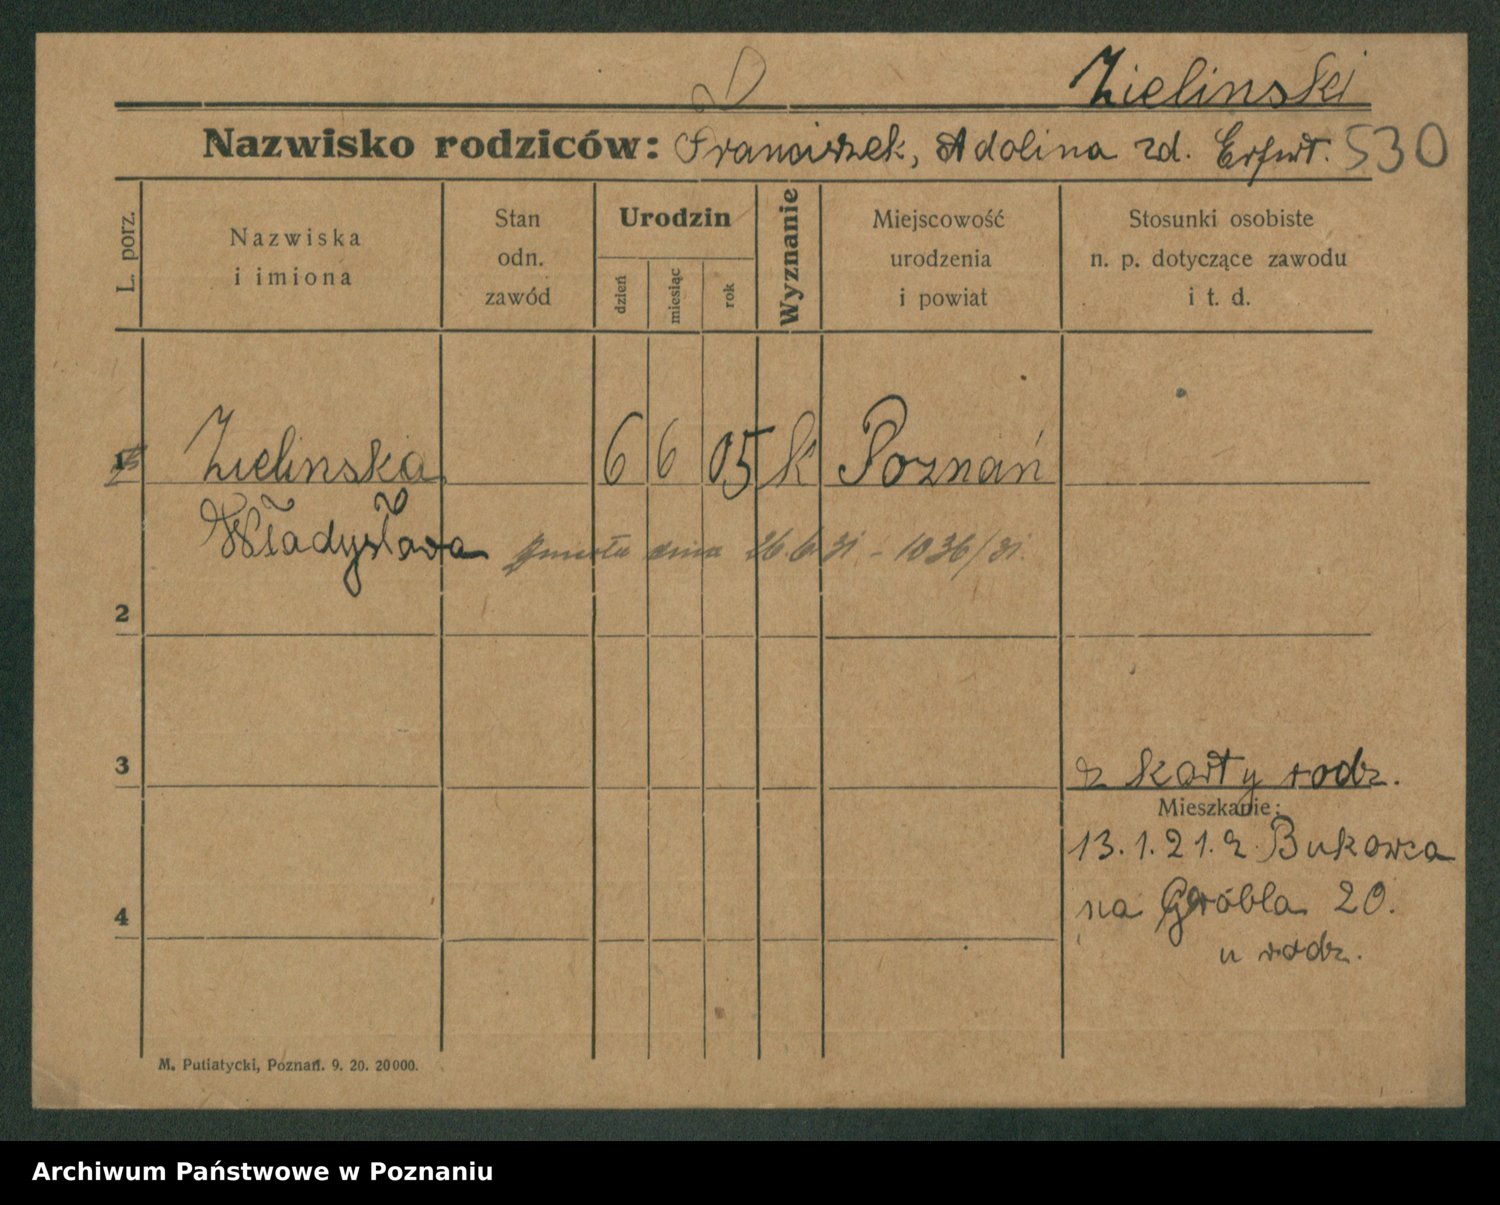 Zielinski
Nazwisko rodziców: Franciszek, Adolina zd. Erfurt. 530
L. porz.
Nazwiska
i imiona
Stan
odn.
zawód
Urodzin
dzień
miesiąc
rok
Wyznanie
Miejscowość
urodzenia
i powiat
Stosunki osobiste
n. p. dotyczące zawodu
i t. d.
1 Zielinska 6 6 05 k Poznań
Władysława zmarła dnia 26.6.31 - 1036/31.
2
3
z karty rodz.
Mieszkanie:
13.1.21. z Bukowca
4
na Grobla 20.
u rodz.
M. Putiatycki, Poznań. 9. 20. 20000.
Archiwum Państwowe w Poznaniu